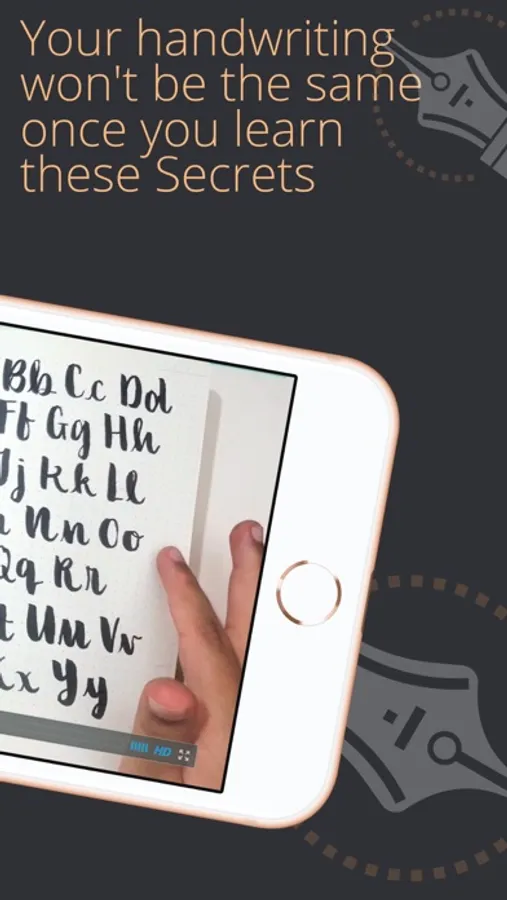 Your handwriting
won't be the same
once you learn
these Secrets
Bb Cc Dd
Ff Gg Hh
Jj Kk Ll
n Nn Oo
Qq Rr
t Uu Vv
x Yy
HD